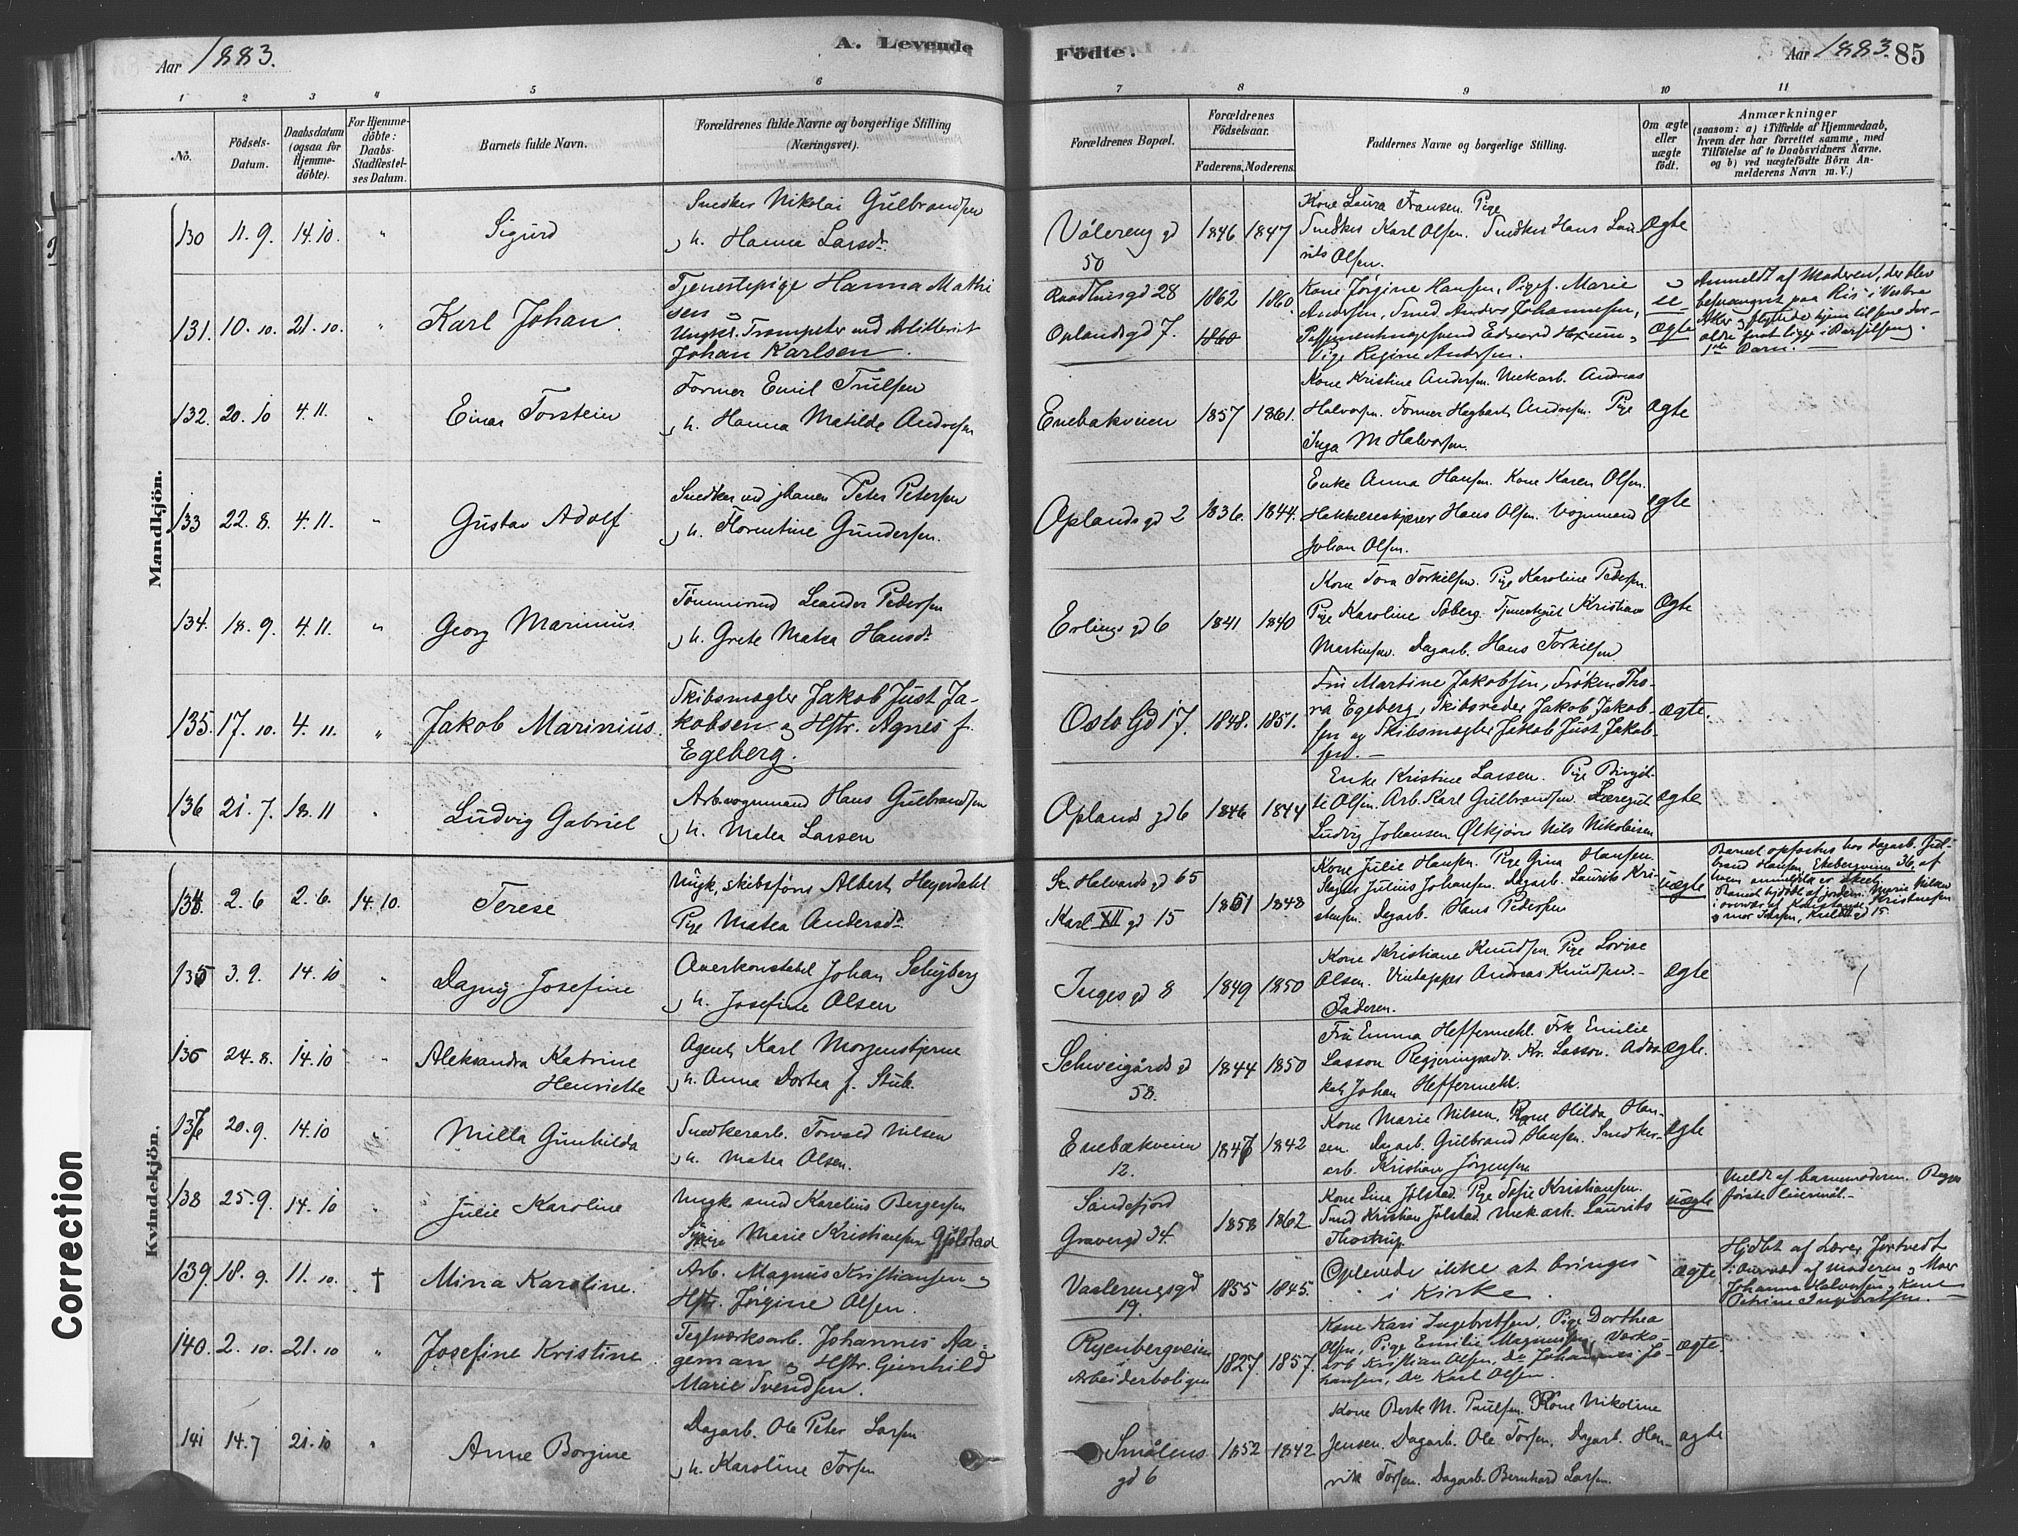 Aar 1883.
A. Levende
Födte.
Aar 1883.
85
1
2
3
4
5
6
7
8
9
10
11
No.
Födsels-
Datum.
Daabsdatum
(ogsaa for
Hjemme-
döbte).
For Hjemme-
döbte:
Daabs-
Stadfæstel-
ses Datum.
Barnets fulde Navn.
Forældrenes fulde Navne og borgerlige Stilling
(Næringsvei).
Forældrenes Bopæl.
Forældrenes
Födselsaar.
Faderens.
Moderens.
Faddernes Navne og borgerlige Stilling.
Om ægte
eller
uægte
födt.
Anmærkninger
(saasom: a) i Tilfælde af Hjemmedaab,
hvem der har forrettet samme, med
Tilföielse af to Daabsvidners Navne,
og b) ved uægtefödte Börn An-
melderens Navn m. V.)
Mandkjön.
130 11. 9. 14. 10. "
Sigurd
Snedker Nikolai Gulbrandsen
og h. Hanna Larsdr.
Vålereng gd
50
1846 1847
Kone Laura Fransen. Pige
Snedker Karl Olsen. Snedker Hans Lau-
rits Olsen.
Ægte
131. 10. 10. 21. 10. "
Karl Johan.
Tjenestepige Hanna Mathi
sen
Ungkr. Trompeter ved Artilleriet
Johan Karlsen.
Raadhusgd 28
Oplandsgd 7.
1862 1860.
1860
Kone Jørgine Hansen, Pige Marie
Andersen, Smed Anders Johannesen,
Edvard
Pige Regine Andersen.
u
se
Ægte
Anmeldt af Moderen, der blev
besvangret paa Ris i Vestre
Aker
1ste Barn.
132. 20. 10 4. 11. "
Einar Torstein
Former Emil Trulsen
og h. Hanna Matilde Andresen
Enebakveien
1857 1861.
Kone Kristine Andersen. Mekarb. Andreas
Halvorsen. Former Hagbart Andresen. Pige
Inga M Halvorsen.
ægte
133 22. 8. 4. 11. "
Gustav Adolf
Snedker ved jbanen Peter Petersen
og h. Florentine Gundersen.
Oplands gd 2
1836. 1844.
Enke Anna Hansen. Kone Karen Olsen.
Hakkelseskjærer Hans Olsen. Vognmand
Johan Olsen.
ægte
134. 18. 9. 4. 11. "
Georg Marinius
Tømmermd Leander Pedersen
og h. Grete Matea Hansdr.
Erlings gd 6
1841 1840
Kone Tora Torkilsen. Pige Karoline Pedersen.
Pige Karoline Soberg. Tjenestegut Kristian
Martinsen. Dagarb. Hans Torkilsen.
Ægte
135. 17. 10. 4. 11. "
Jakob Marinius.
Skibsmægler Jakob Just Ja-
kobsen og Hstr. Agnes f.
Egeberg.
Oslo Gd 17.
1848. 1851.
Fru Martine Jakobsen, Frøken Tho-
ra Egeberg, Skibsreder Jakob Jakob-
sen og Skibsmægler Jakob Just Jakob-
sen. —
ægte.
136 21. 7. 18. 11 "
Ludvig Gabriel
Arb. vognmand Hans Gulbrandsen
og h. Matea Larsen
Oplands gd 6
1846 1844
Enke Kristine Larsen. Pige Birgit-
te Olsen. Arb. Karl Gulbrandsen. Læregut
Ludvig Johansen Ølkjører Nils Nikolaisen
ægte
Kvindekjön.
134. 2. 6 2. 6. 14. 10.
Terese
Ungk. skibsfører Albert Heyerdahl
Pige Matea Andersdr.
St. Halvards gd 65
Karl XII gd 15
1851 1848
Kone Julie Hansen. Pige Gina Hansen.
Slagter Julius Johansen. Dagarb. Laurits Kri-
stensen. Dagarb. Hans Pedersen
uægte
Barnet opfostres hos dagarb. Gul-
brand Hansen Ekebergveien 36. af
hvem anmeldte er skeet.
Barnet hjdøbt af jordm. Marie Nilsen
135 3. 9. 14. 10 "
Dagny Josefine
Overkonstabel Johan Schyberg
og h. Josefine Olsen
Inges gd 8
1849 1850
Kone Kristiane Knudsen Pige Lovise
Olsen. Vintapper Andreas Knudsen.
Faderen.
ægte
136 24. 8. 14. 10 "
Aleksandra Katrine
Henriette
Agent Karl Morgenstjerne
og h. Anna Dortea f. Stub.
Schweigårds gd
58.
1844 1850
Fru Emma Heffermehl. Frk Emilie
Lasson Regjeringsadv. Kr. Lasson. Advo-
kat Johan Heffermehl.
ægte.
137 20. 9. 14. 10 "
Milla Gunhilda
Snedkerarb. Torvald Nilsen
og h. Matea Olsen.
Enebækveien
12.
1847 1842
Kone Marie Nilsen. Kone Hilda Han-
sen. Dagarb. Gulbrand Hansen. Snedker-
arb. Kristian Jørgensen
ægte
138 25. 9. 14. 10 "
Julie Karoline
Ungk. smed Karelius Bergersen
Pige Marie Kristiansen Gjølstad
Sandefjord
Gravergd 34.
1858 1862
Kone Lina Jølstad. Pige Sofie Kristiansen.
Smed Kristian Jølstad. Mek ark. Laurits
Thostrup
uægte
Meldt af barnemoderen. Begges
første leiermål. —
139. 18. 9. 11. 10. †
Minna Karoline.
Arb. Magnus Kristiansen og
Hstr. Jørgine Olsen.
Vaalerengsgd
19.
1855 1845.
Oplevede ikke at bringes
i Kirke.
ægte
Hjdbt af Lærer Jortvedt
i Overvær af Moderen og Mor
Johanna Halvorsen og Kone
Petrine Ingebretsen. —
140. 2. 10. 21. 10 "
Josefine Kristine
Teglværksarb. Johannes Aa-
geman og Hstr. Gunhild
Marie Svendsen.
Ryenbergveien
i
Arbeiderboligen
1827. 1857.
Kone Kari Ingebretsen, Pige Dorthea
Olsen, Pige Emilie Magnussen, Værks-
arb Kristian Olsen, Do Johannes Jo-
hansen, Do Karl Olsen.
ægte.
141 14. 7 21. 10 "
Anne Borgine
Dagarb. Ole Peter Larsen
og h. Karoline Torsen
Smålens
gd 6
1852 1842
Kone Berte M. Paulsen. Kone Nikoline
Jensen. Dagarb. Ole Torsen. Dagarb. Hen-
rik Torsen. Dagarb. Bernhard Larsen.
ægte
Correction